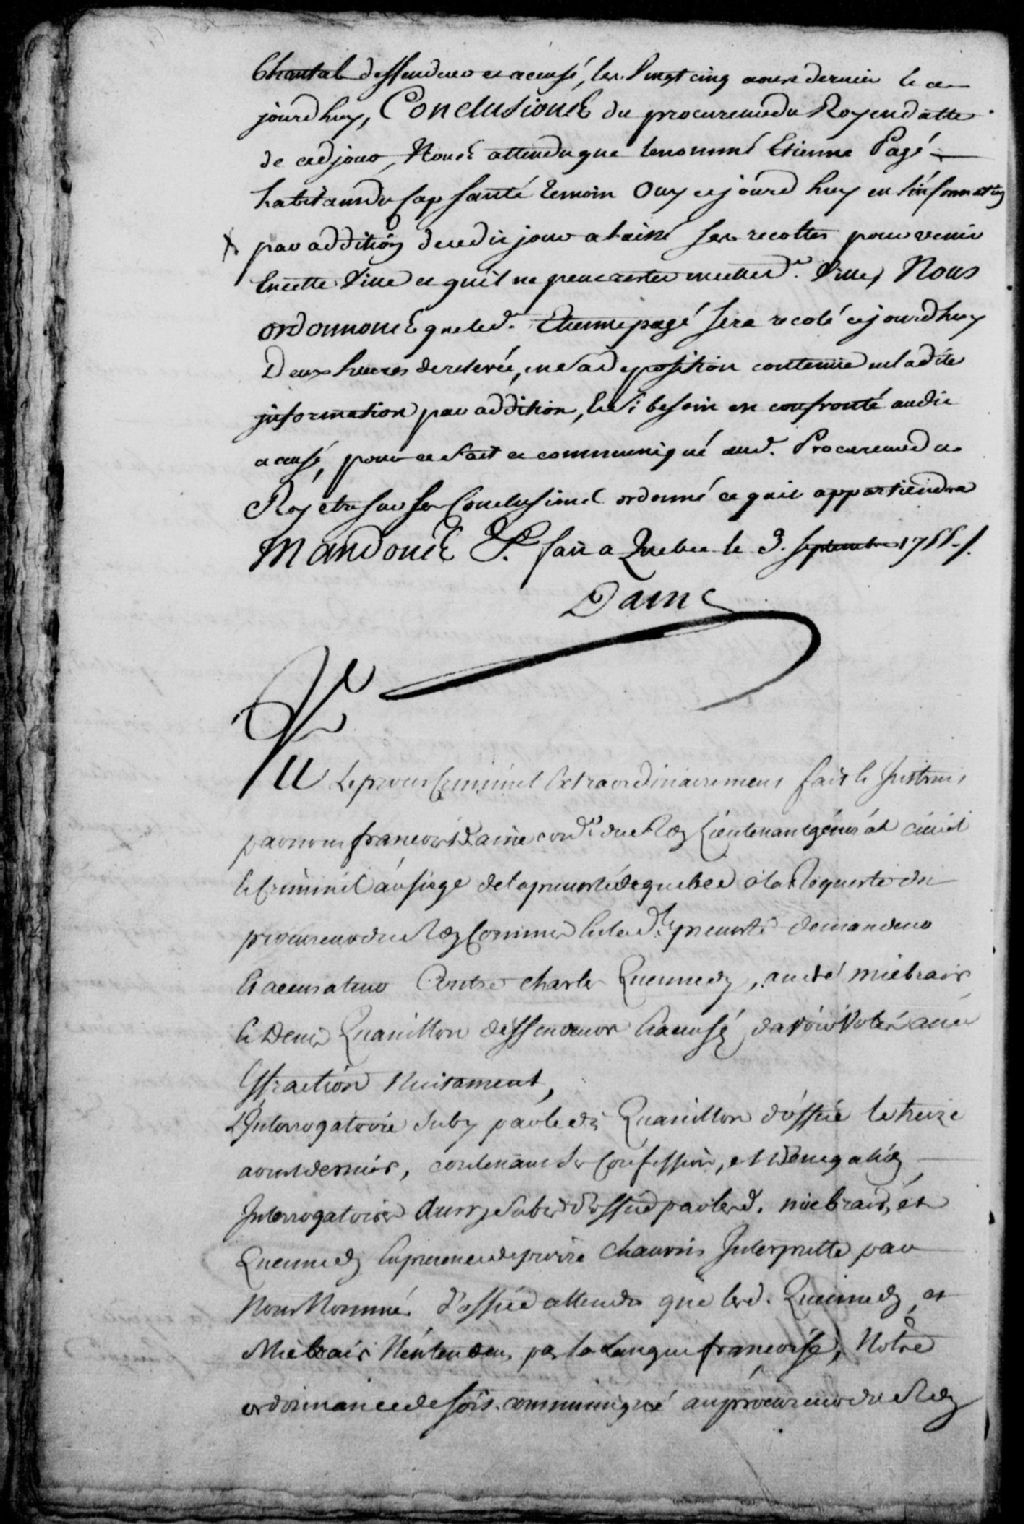 Chantal deffendeur et accusé, les vingt cinq aoust dernier et ce
jourd'huy, Conclusions du procureur du Roy en datte
de cedjour, Nous attendu que le nommé Etienne Pagé
habitant du Cap Santé temoin ouy cejourd'huy en l'information
par addition de cedit jour a laissé ses recoltes pour venir
en cette ville et qu'il ne peut rester en cette de. ville, Nous
ordonnons que led. Etienne pagé sera recolé cejourd'huy
Deux heures de relevée, en sa deposition contenue en ladite
information par addition, et si besoin est confronté audit
accusé, pour ce fait et communiqué aud. Procureur du
Roy etre sur ses Conclusions ordonné ce qu'il appartiendra
Mandons &c. fait a Quebec le 3. septembre 175
Daine
Vu le proces Criminel Extraordinairement fait et Instruit
par nous françois Daine conr. du Roy Lieutenant general civil
et Criminel au siege de la prevosté de quebec a la Requeste du
procureur du Roy Commis de lad. prevosté demandeur
et accusateur Contre charles Quennedy, andré miebrais
et Denis Quanillon deffendeurs et accusés, d'avoir volé avec
Effraction Nuitament,
L'Interrogatoire suby par led. Quanillon d'office le treize
aoust dernier, contenant ses Confession, et Denegation
Interrogatoires aussy subis d'office par lesd. miebrais, et
Quennedy En presence de pierre Chauvin Interprette par
Nous Nommé d'office attendu que lesd. Quennedy, et
Miebrais N'entendent pas la Langue françoise, Notre
ordonnance de soit communiqué au procureur du Roy